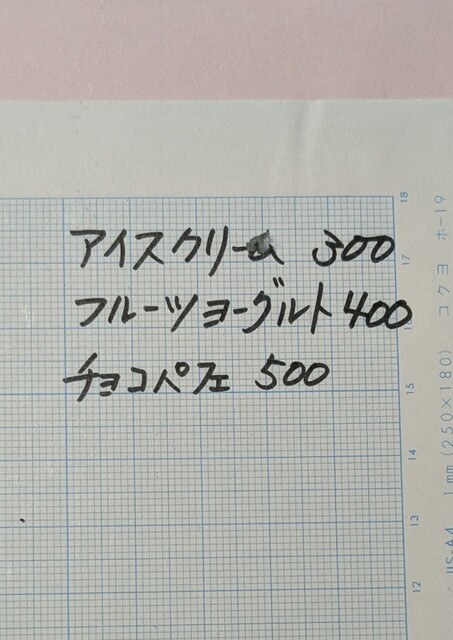 アイスクリーム 300
フルーツヨーグルト 400
チョコパフェ 500
18
17
15
14
13
12
コクヨ ホ-19
1mm (250×180)